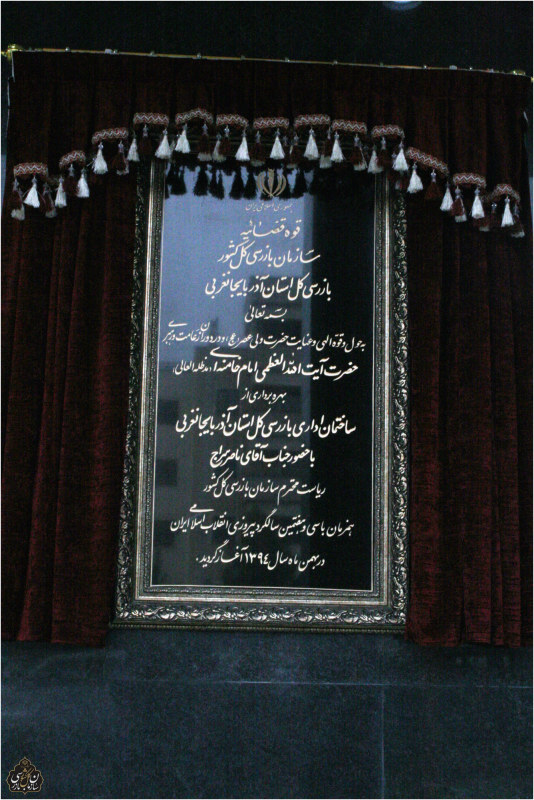 جمهوری اسلامی ایران
قوه قضائیه
سازمان بازرسی کل کشور
بازرسی کل استان آذربایجانغربی
بسمه تعالی
به حول و قوه الهی و عنایت حضرت ولی عصر (عج) و در دوران زعامت و رهبری
حضرت آیت الله العظمی امام خامنه ای (مدظله العالی)
بهره برداری از
ساختمان اداری بازرسی کل استان آذربایجانغربی
با حضور جناب آقای ناصر سراج
ریاست محترم سازمان بازرسی کل کشور
همزمان با سی و هفتمین سالگرد پیروزی انقلاب اسلامی ایران
در بهمن ماه سال ۱۳۹۴ آغاز گردید.